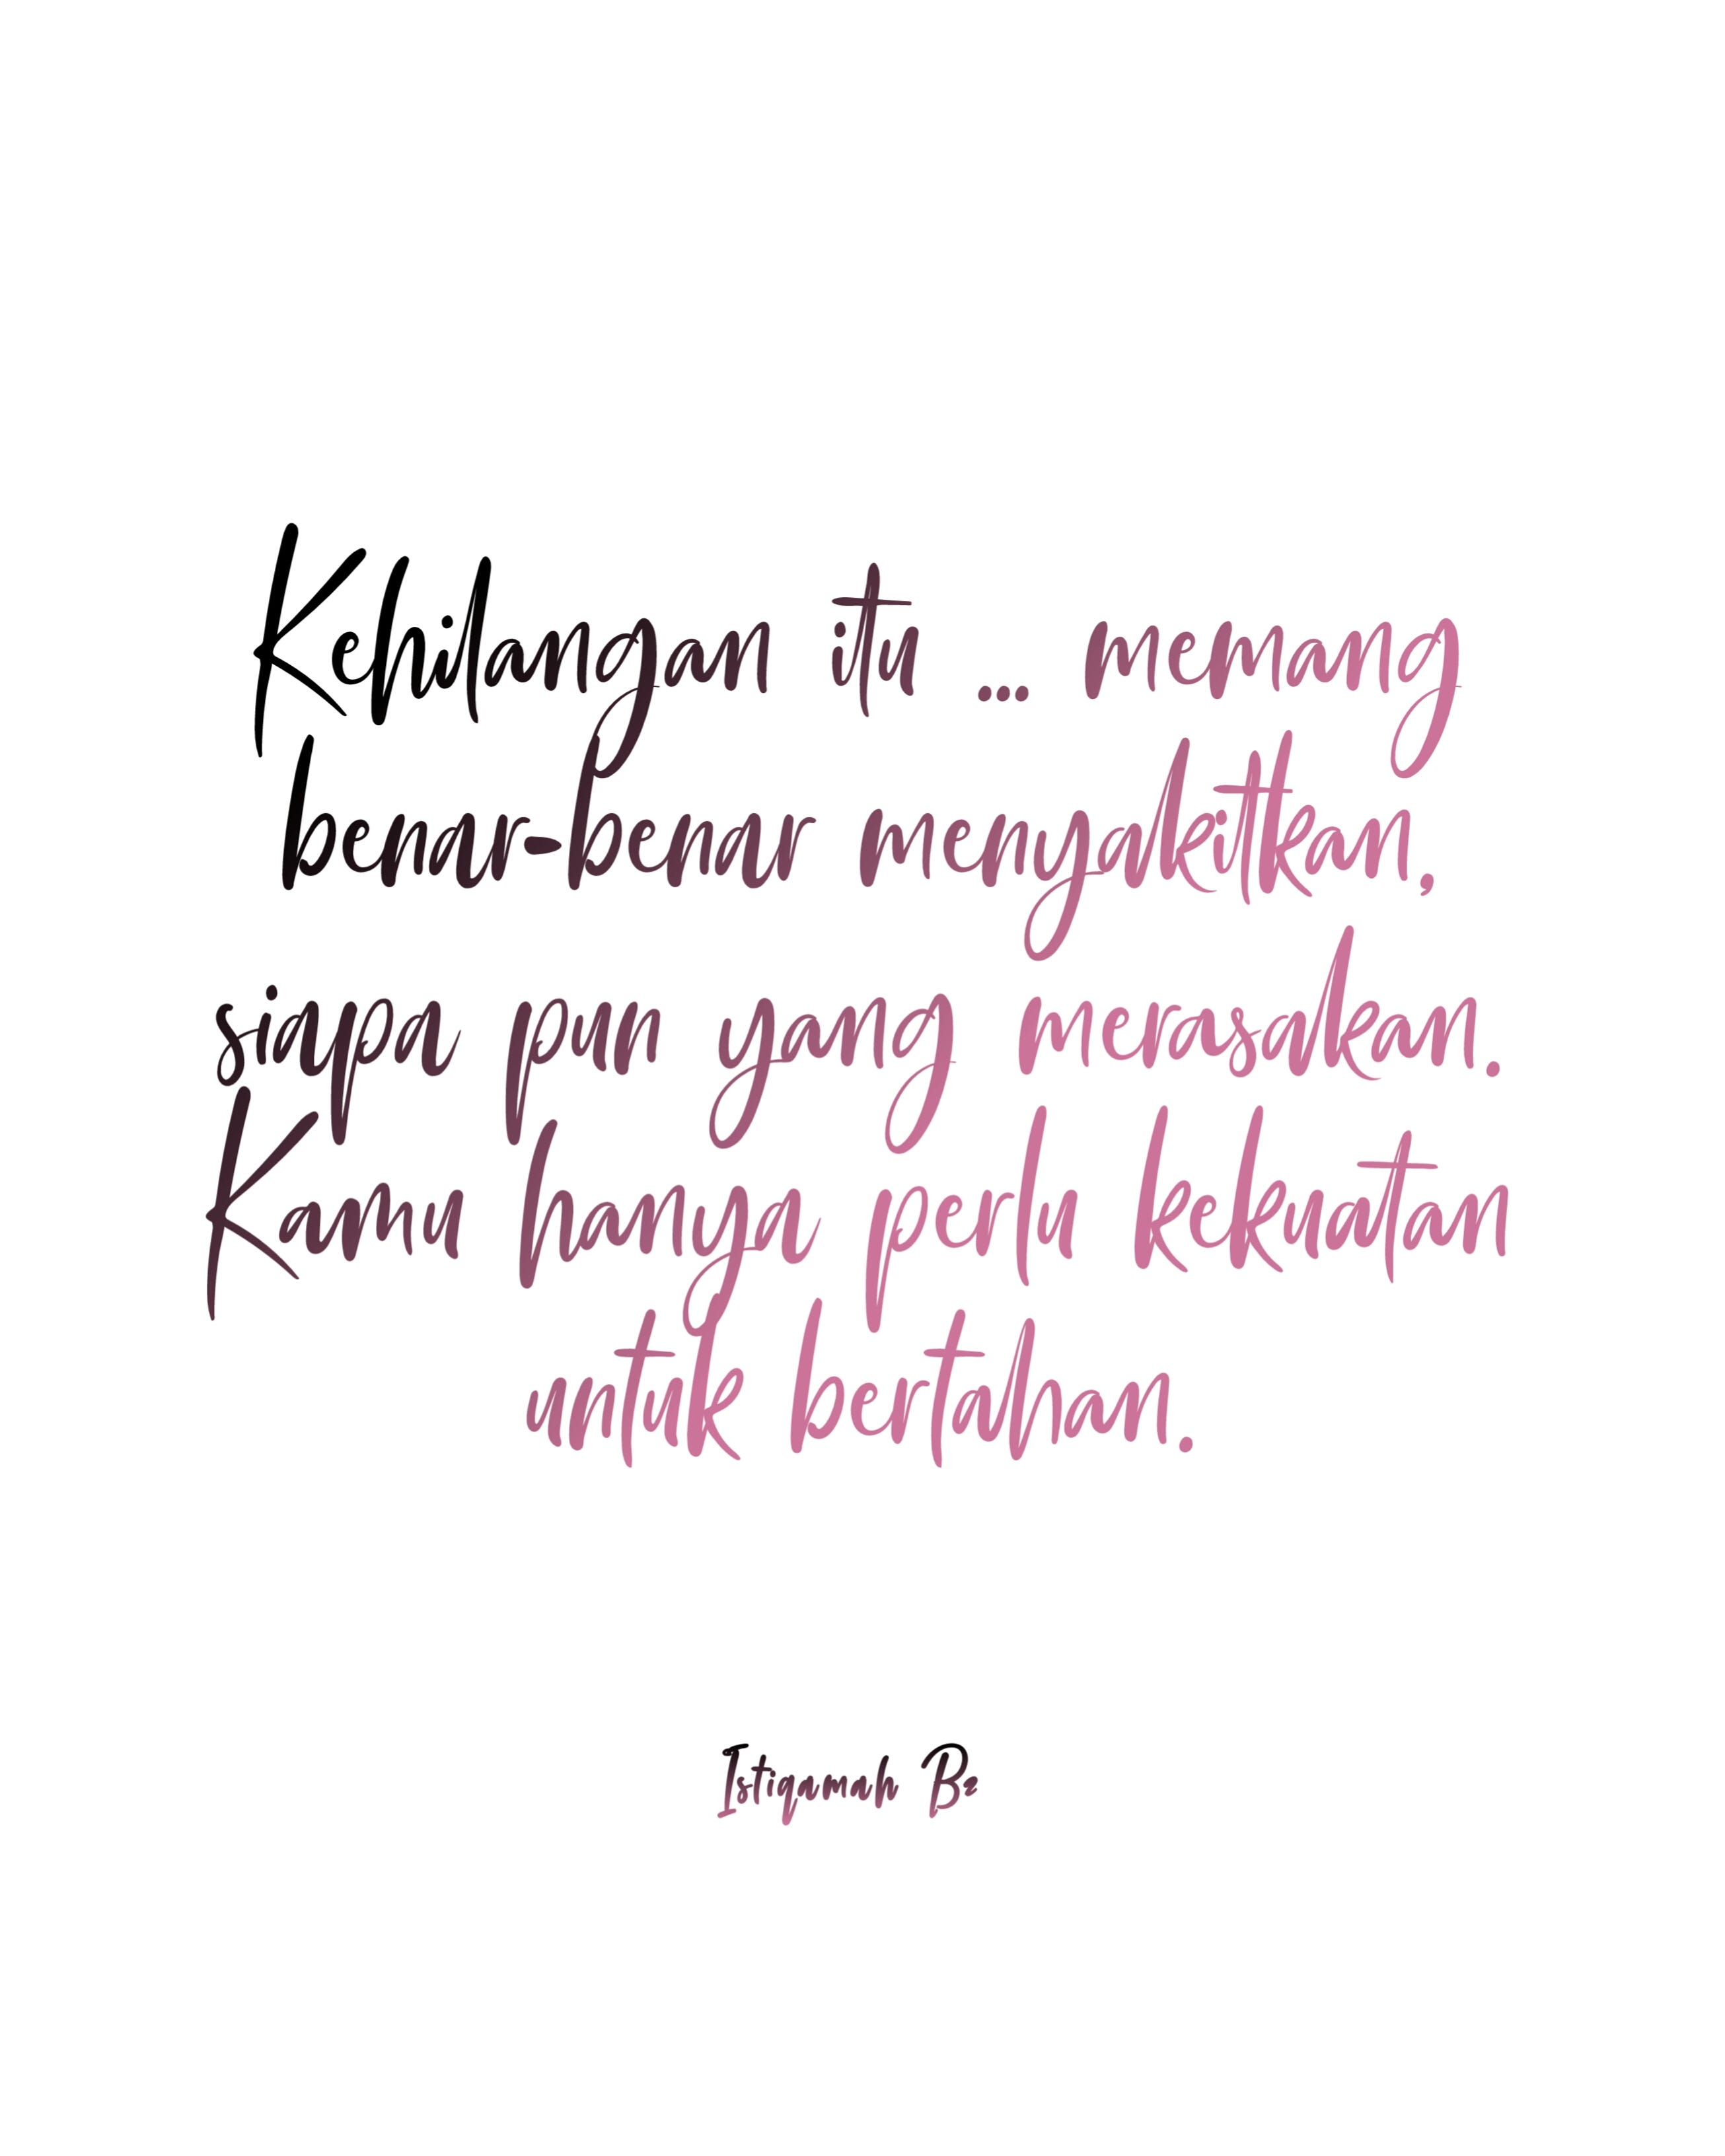 Kehilangan itu ... memang
benar-benar menyakitkan,
siapa pun yang merasakan.
Kamu hanya perlu kekuatan
untuk bertahan.
Istiqamah Be